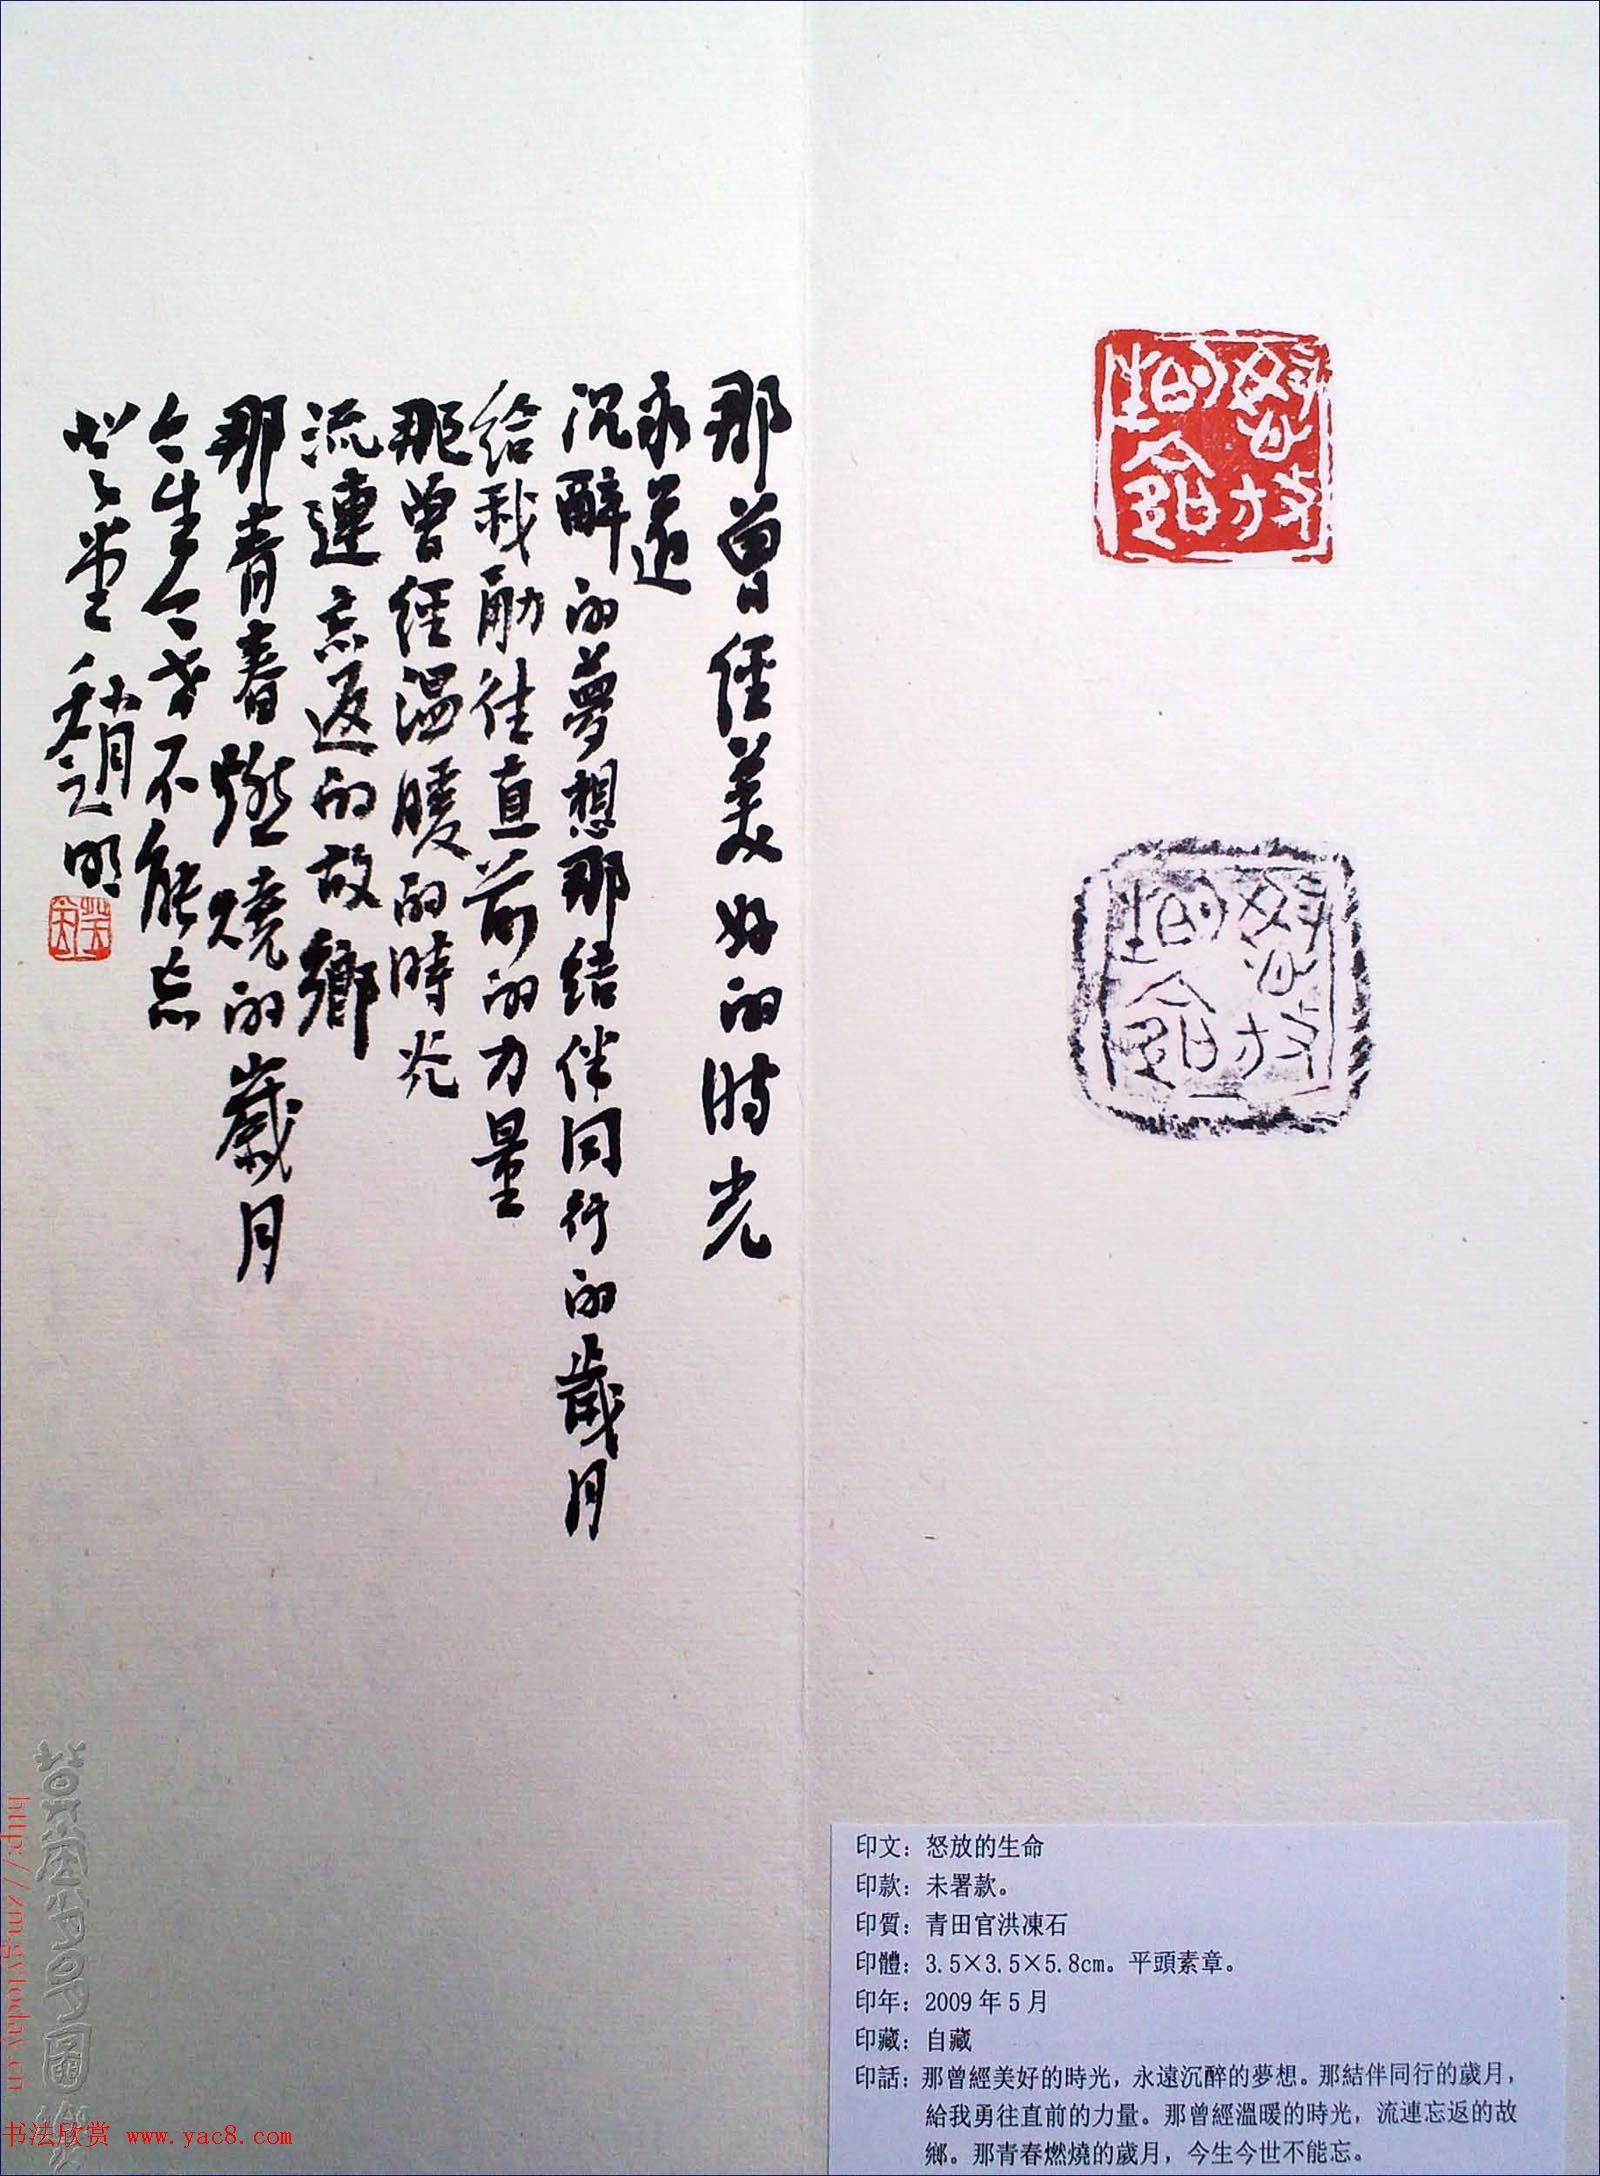 那曾經美好的時光
永遠
沉醉的夢想那結伴同行的歲月
給我勇往直前的力量
那曾經温暖的時光
流連忘返的故鄉
那青春燃燒的歲月
今生今世不能忘
怒放的生命
印文：怒放的生命
印款：未署款。
印質：青田官洪凍石
印體：3.5×3.5×5.8cm。平頭素章。
印年：2009年5月
印藏：自藏
印話：那曾經美好的時光，永遠沉醉的夢想。那結伴同行的歲月，
給我勇往直前的力量。那曾經溫暖的時光，流連忘返的故
鄉。那青春燃燒的歲月，今生今世不能忘。
书法欣赏 www.yac8.com